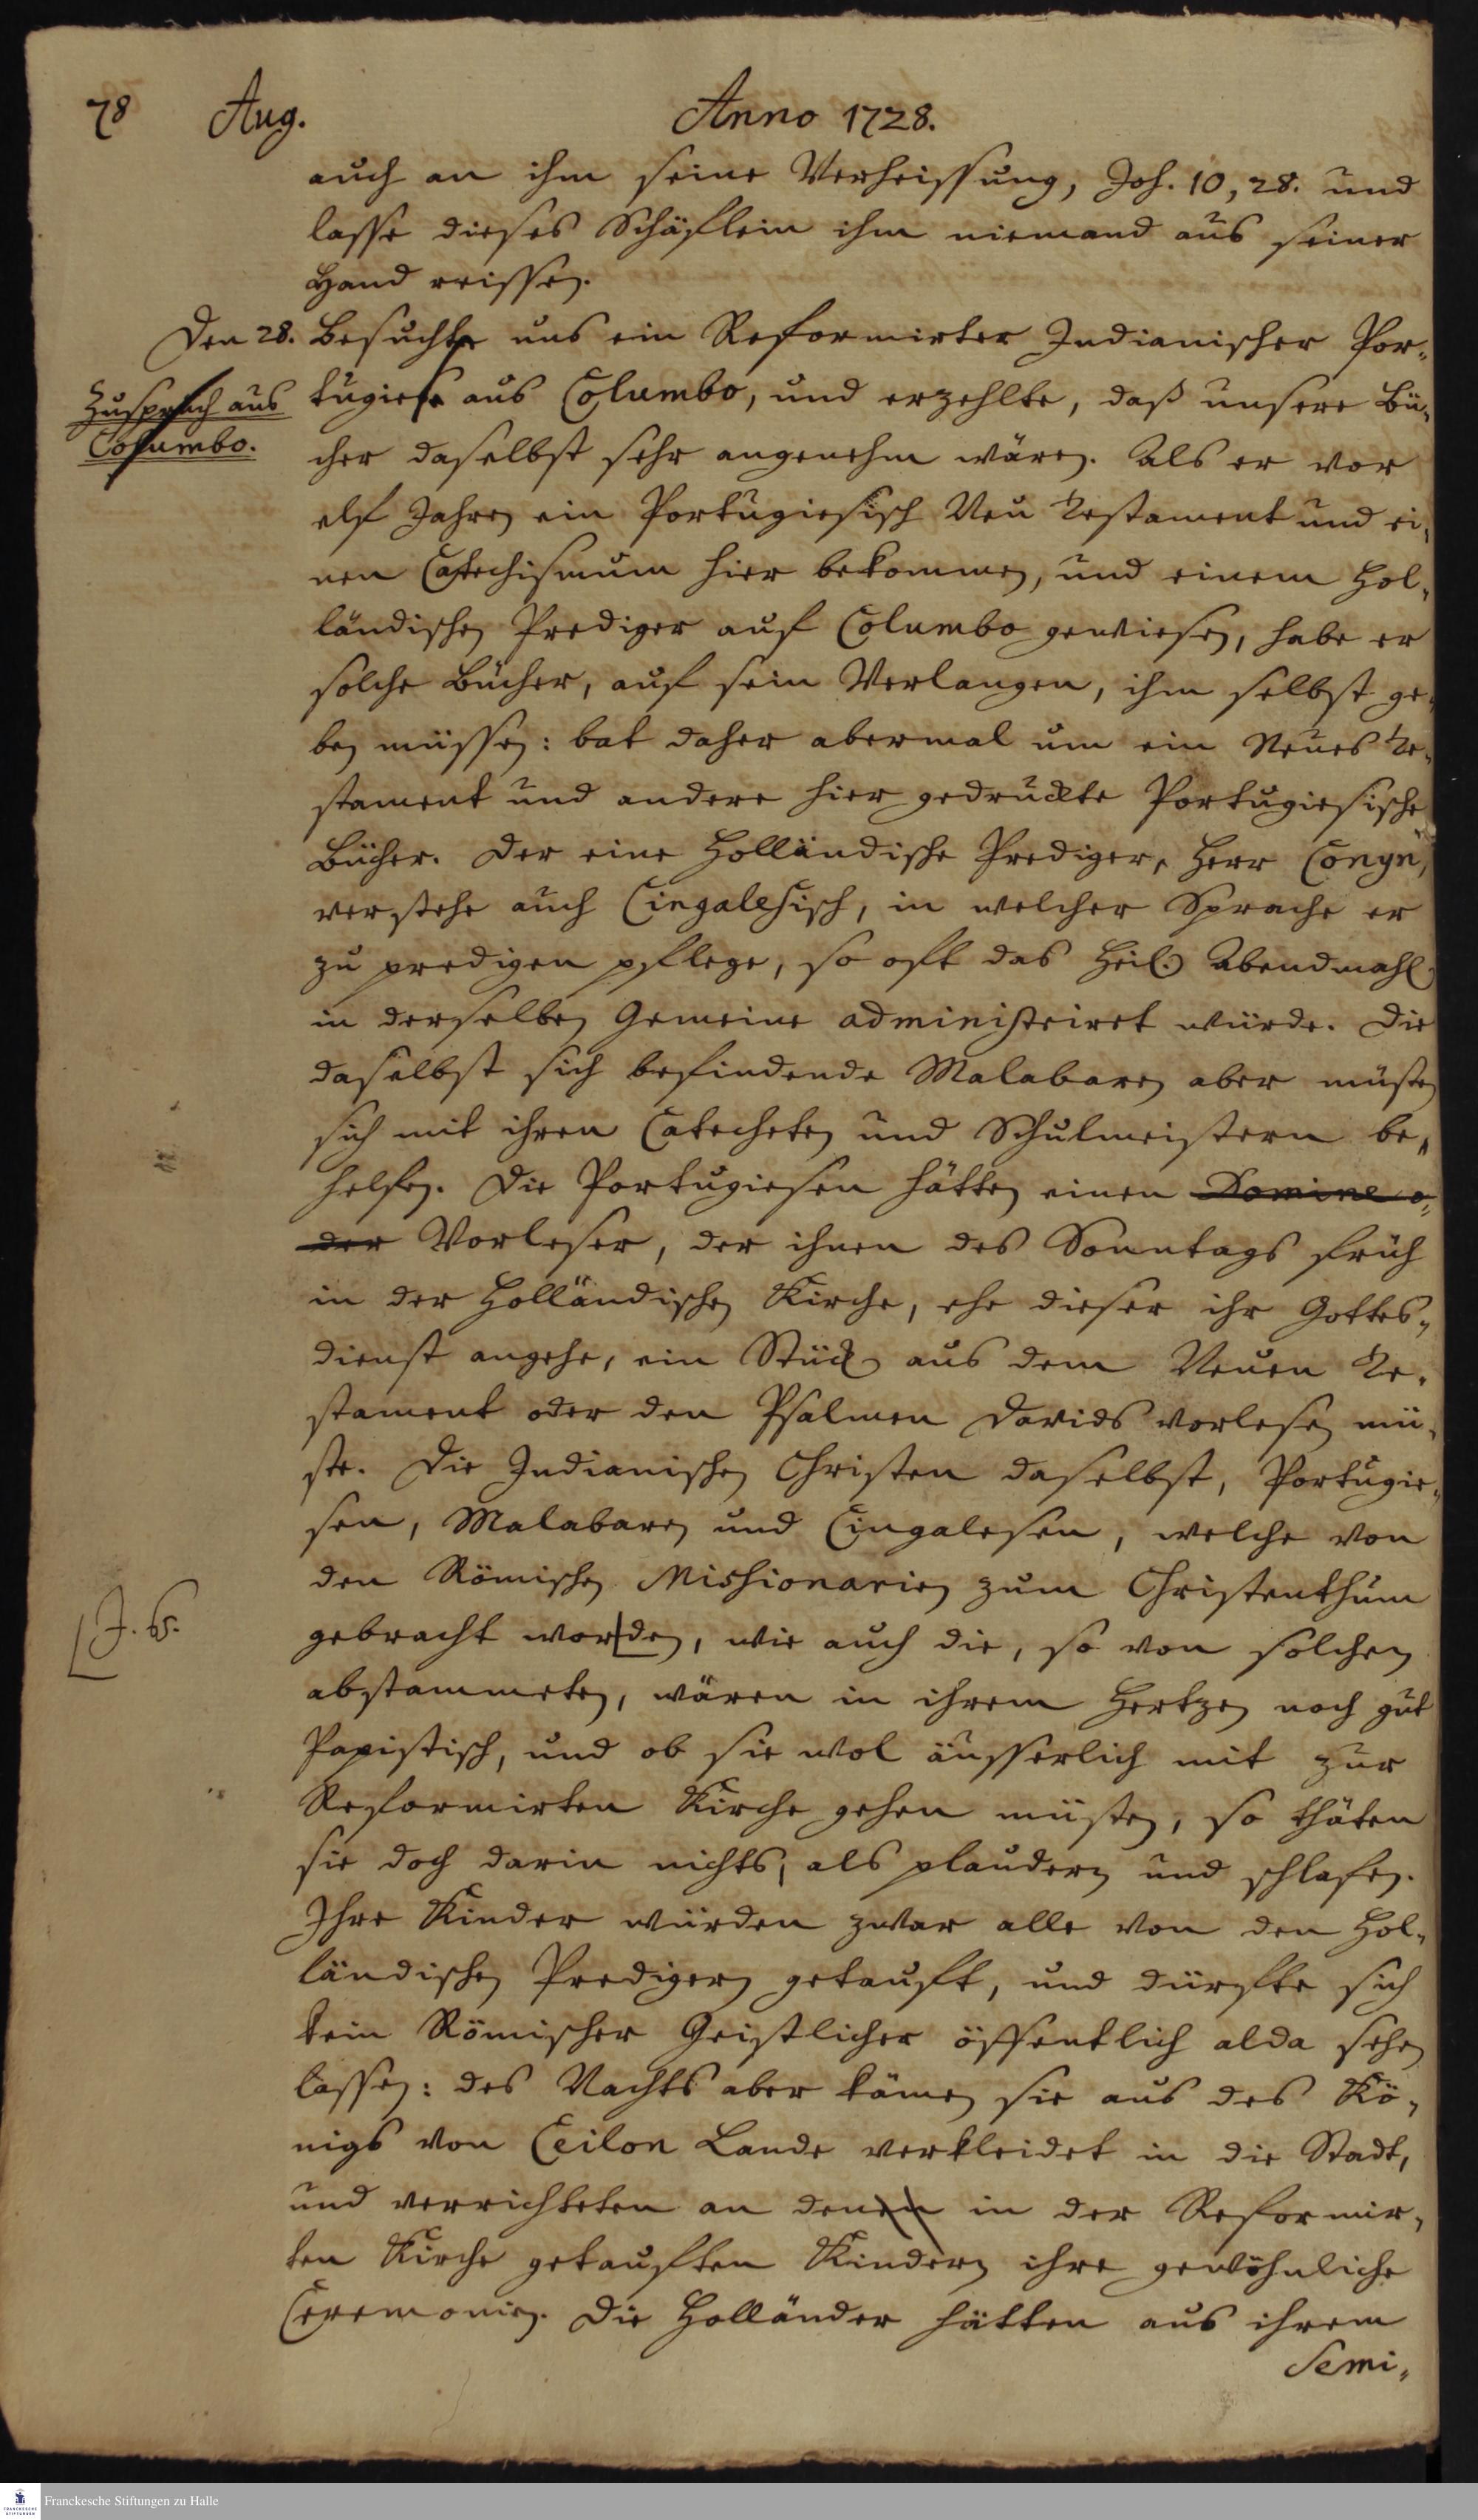 78 Aug. Anno 1728.
auch an ihm seine Verheissung, Joh. 10, 28. und
lasse dieses Schäflein ihm niemand aus seiner
Hand reissen.
Den 28. Besuchte uns ein Reformirter Indianischer Por-
Zuspruch aus
Columbo.
tugiese aus Columbo, und erzehlte, daß unsere Bü-
cher daselbst sehr angenehm wären. Als er vor
elf Jahren ein Portugiesisch Neu Testament und ei-
nen Catechismum hier bekommen, und einem Hol-
ländischen Prediger auf Columbo gewiesen, habe er
solche Bücher, auf sein Verlangen, ihm selbst ge-
ben müssen: bat daher abermal um ein Neues Te-
stament und andere hier gedruckte Portugiesische
Bücher. Der eine Holländische Prediger, Herr Conyn,
verstehe auch Cingalesisch, in welcher Sprache er
zu predigen pflege, so oft das Heil. Abendmahl
in derselben Gemeine administriret würde. Die
daselbst sich befindende Malabaren aber müsten
sich mit ihren Catecheten und Schulmeistern be-
helfen. Die Portugiesen hätten einen Domine o-
der Vorleser, der ihnen des Sonntags früh
in der Holländischen Kirche, ehe dieser ihr Gottes-
dienst angehe, ein Stück aus dem Neuen Te-
stament oder den Psalmen Davids vorlesen mü-
ste. Die Indianischen Christen daselbst, Portugie-
sen, Malabaren und Cingalesen, welche von
den Römischen Missionarien zum Christenthum
gebracht worden, wie auch die, so von solchen
abstammeten, wären in ihrem Hertzen noch gut
Papistisch, und ob sie wol äusserlich mit zur
Reformirten Kirche gehen müsten, so thäten
sie doch darin nichts, als plaudern und schlafen.
Ihre Kinder würden zwar alle von den Hol-
ländischen Predigern getauft, und dürfte sich
kein Römischer Geistlicher öffentlich alda sehen
lassen: des Nachts aber kämen sie aus des Kö-
nigs von Ceilon Lande verkleidet in die Stadt,
und verrichteten an denen in der Reformir-
ten Kirche getauften Kindern ihre gewöhnliche
Ceremonien. Die Holländer hätten aus ihrem
Semi-
Franckesche Stiftungen zu Halle